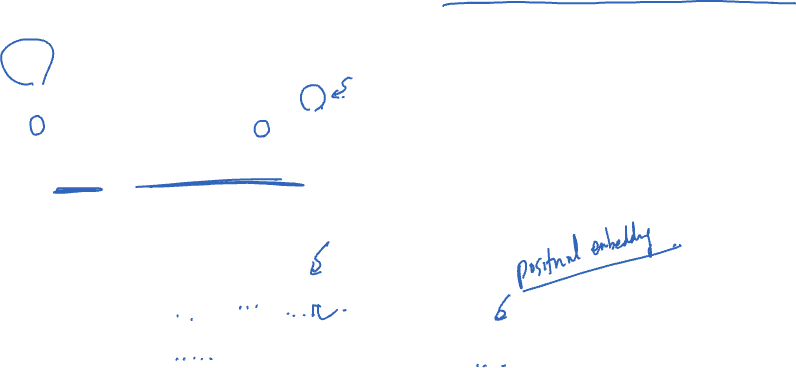 positional embedding